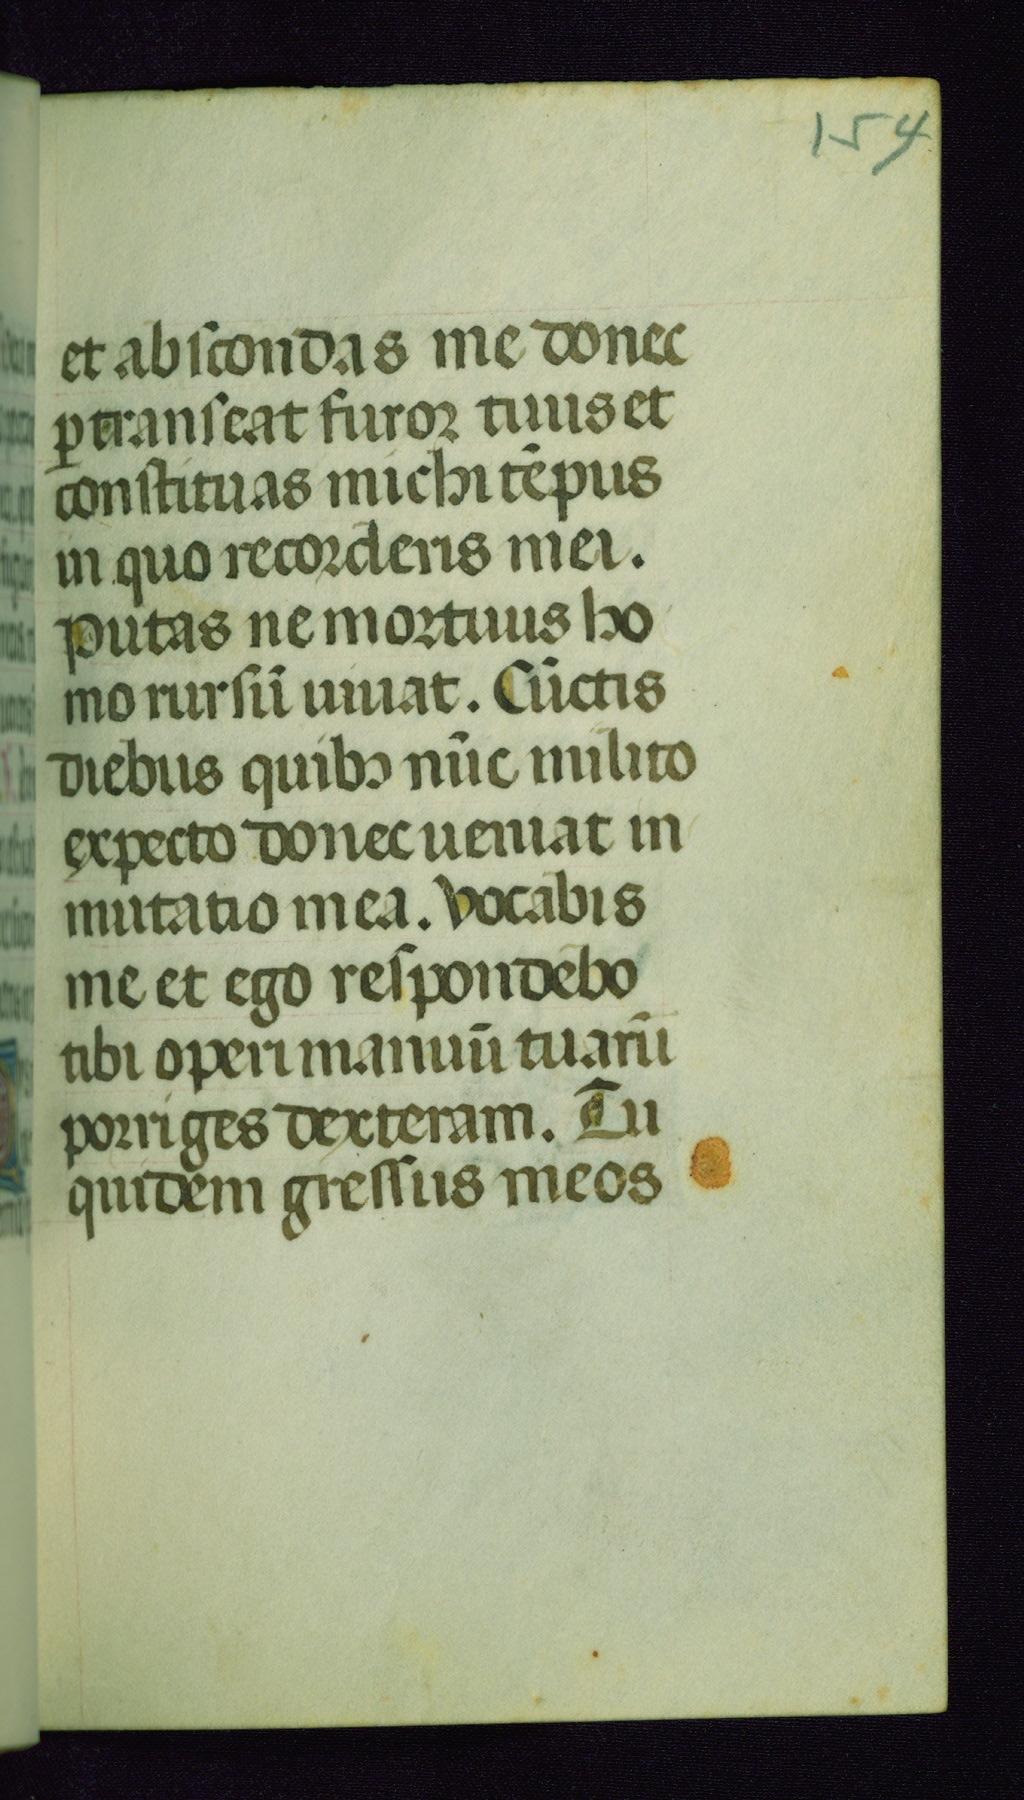 154
et abscondas me donec
ꝑtranseat furor tuus et
constituas michi tēpus
in quo recorderis mei.
Putas ne mortuus ho
mo rursū uiuat. Cūctis
diebus quibꝫ nūc milito
expecto donec ueniat in
mutatio mea. Vocabis
me et ego respondebo
tibi operi manuū tuarū
porriges dexteram. Tu
quidem gressus meos